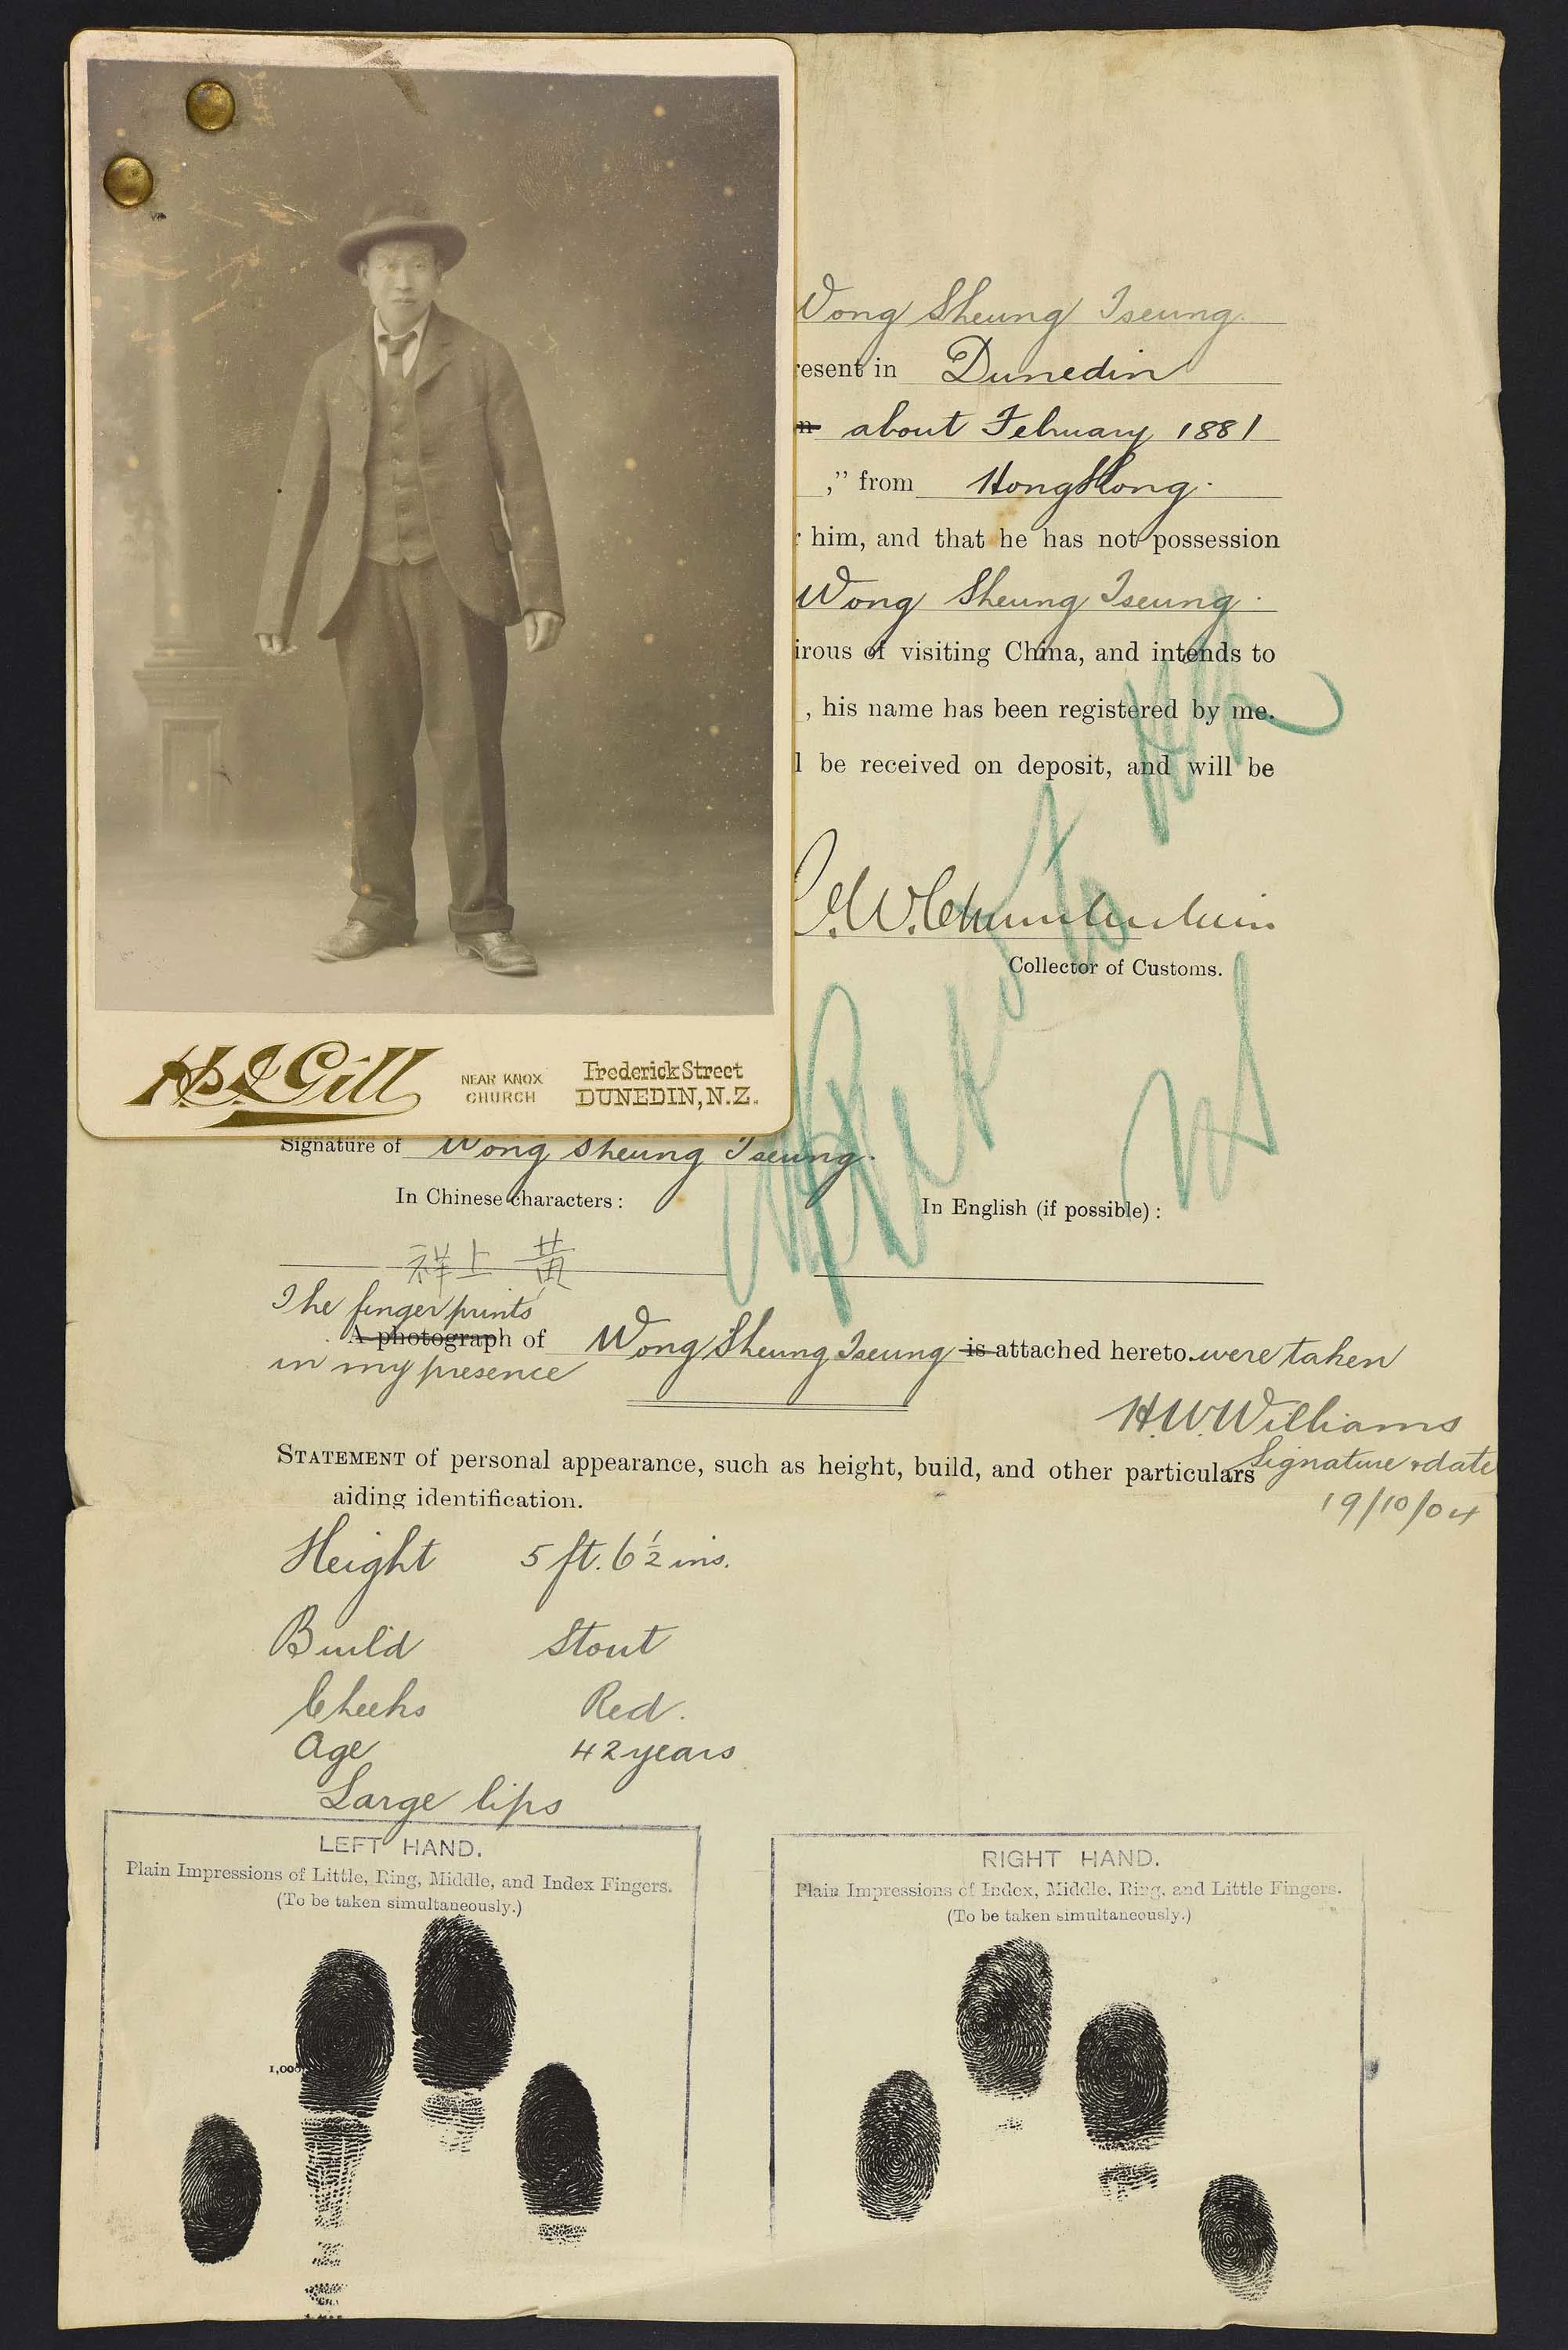 Wong Sheung Tseung.
resent in Dunedin
n about February 1881
," from HongKong.
r him, and that he has not possession
Wong Sheung Tseung.
irous of visiting China, and intends to
, his name has been registered by me.
l be received on deposit, and will be
C.W. Chamberlain
Collector of Customs.
Gill NEAR KNOX CHURCH Frederick Street DUNEDIN, N.Z.
Signature of Wong Sheung Tseung.
In Chinese characters: In English (if possible):
祥上黃
The finger prints
A photograph of Wong Sheung Tseung is attached hereto. were taken
in my presence
H.W. Williams
Signature & date
19/10/04
STATEMENT of personal appearance, such as height, build, and other particulars
aiding identification.
Height 5 ft. 6½ ins.
Build Stout
Cheeks Red.
Age 42 years
Large lips
LEFT HAND.
Plain Impressions of Little, Ring, Middle, and Index Fingers.
(To be taken simultaneously.)
RIGHT HAND.
Plain Impressions of Index, Middle, Ring, and Little Fingers.
(To be taken simultaneously.)
1,00